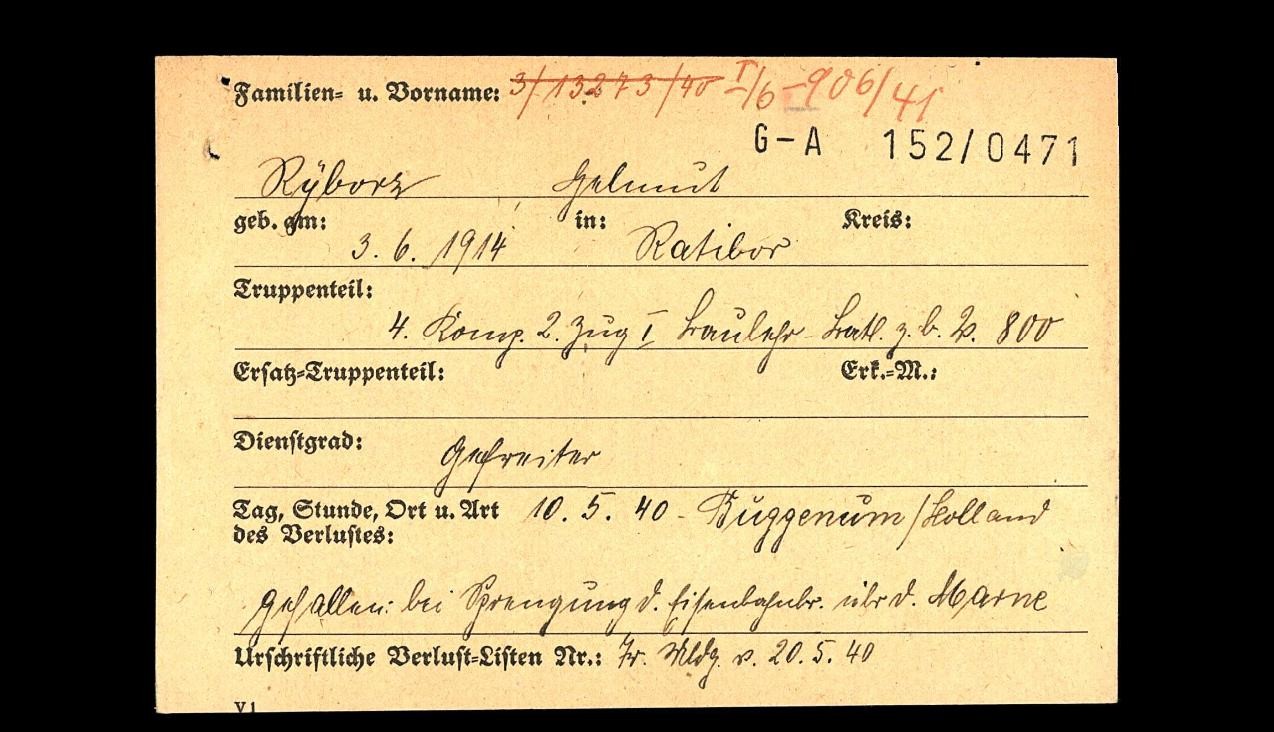 Familien= u. Vorname: 3/13273/40 I/6-906/41
G-A 152/0471
Rÿborz Helmut
geb. am: in: Kreis:
3. 6. 1914 Ratibor
Truppenteil:
4. Komp. 2. Zug I Baulehr-Batl. z. b. V. 800
Ersatz=Truppenteil: Erk.=M.:
Dienstgrad: Gefreiter
Tag, Stunde, Ort u. Art 10. 5. 40 - Buggenum/Holland
des Verlustes:
gefallen: bei Sprengung d. Eisenbahnbr. übr d. Marne
Urschriftliche Verlust=Listen Nr.: Fr. Mldg. v. 20. 5. 40
V1